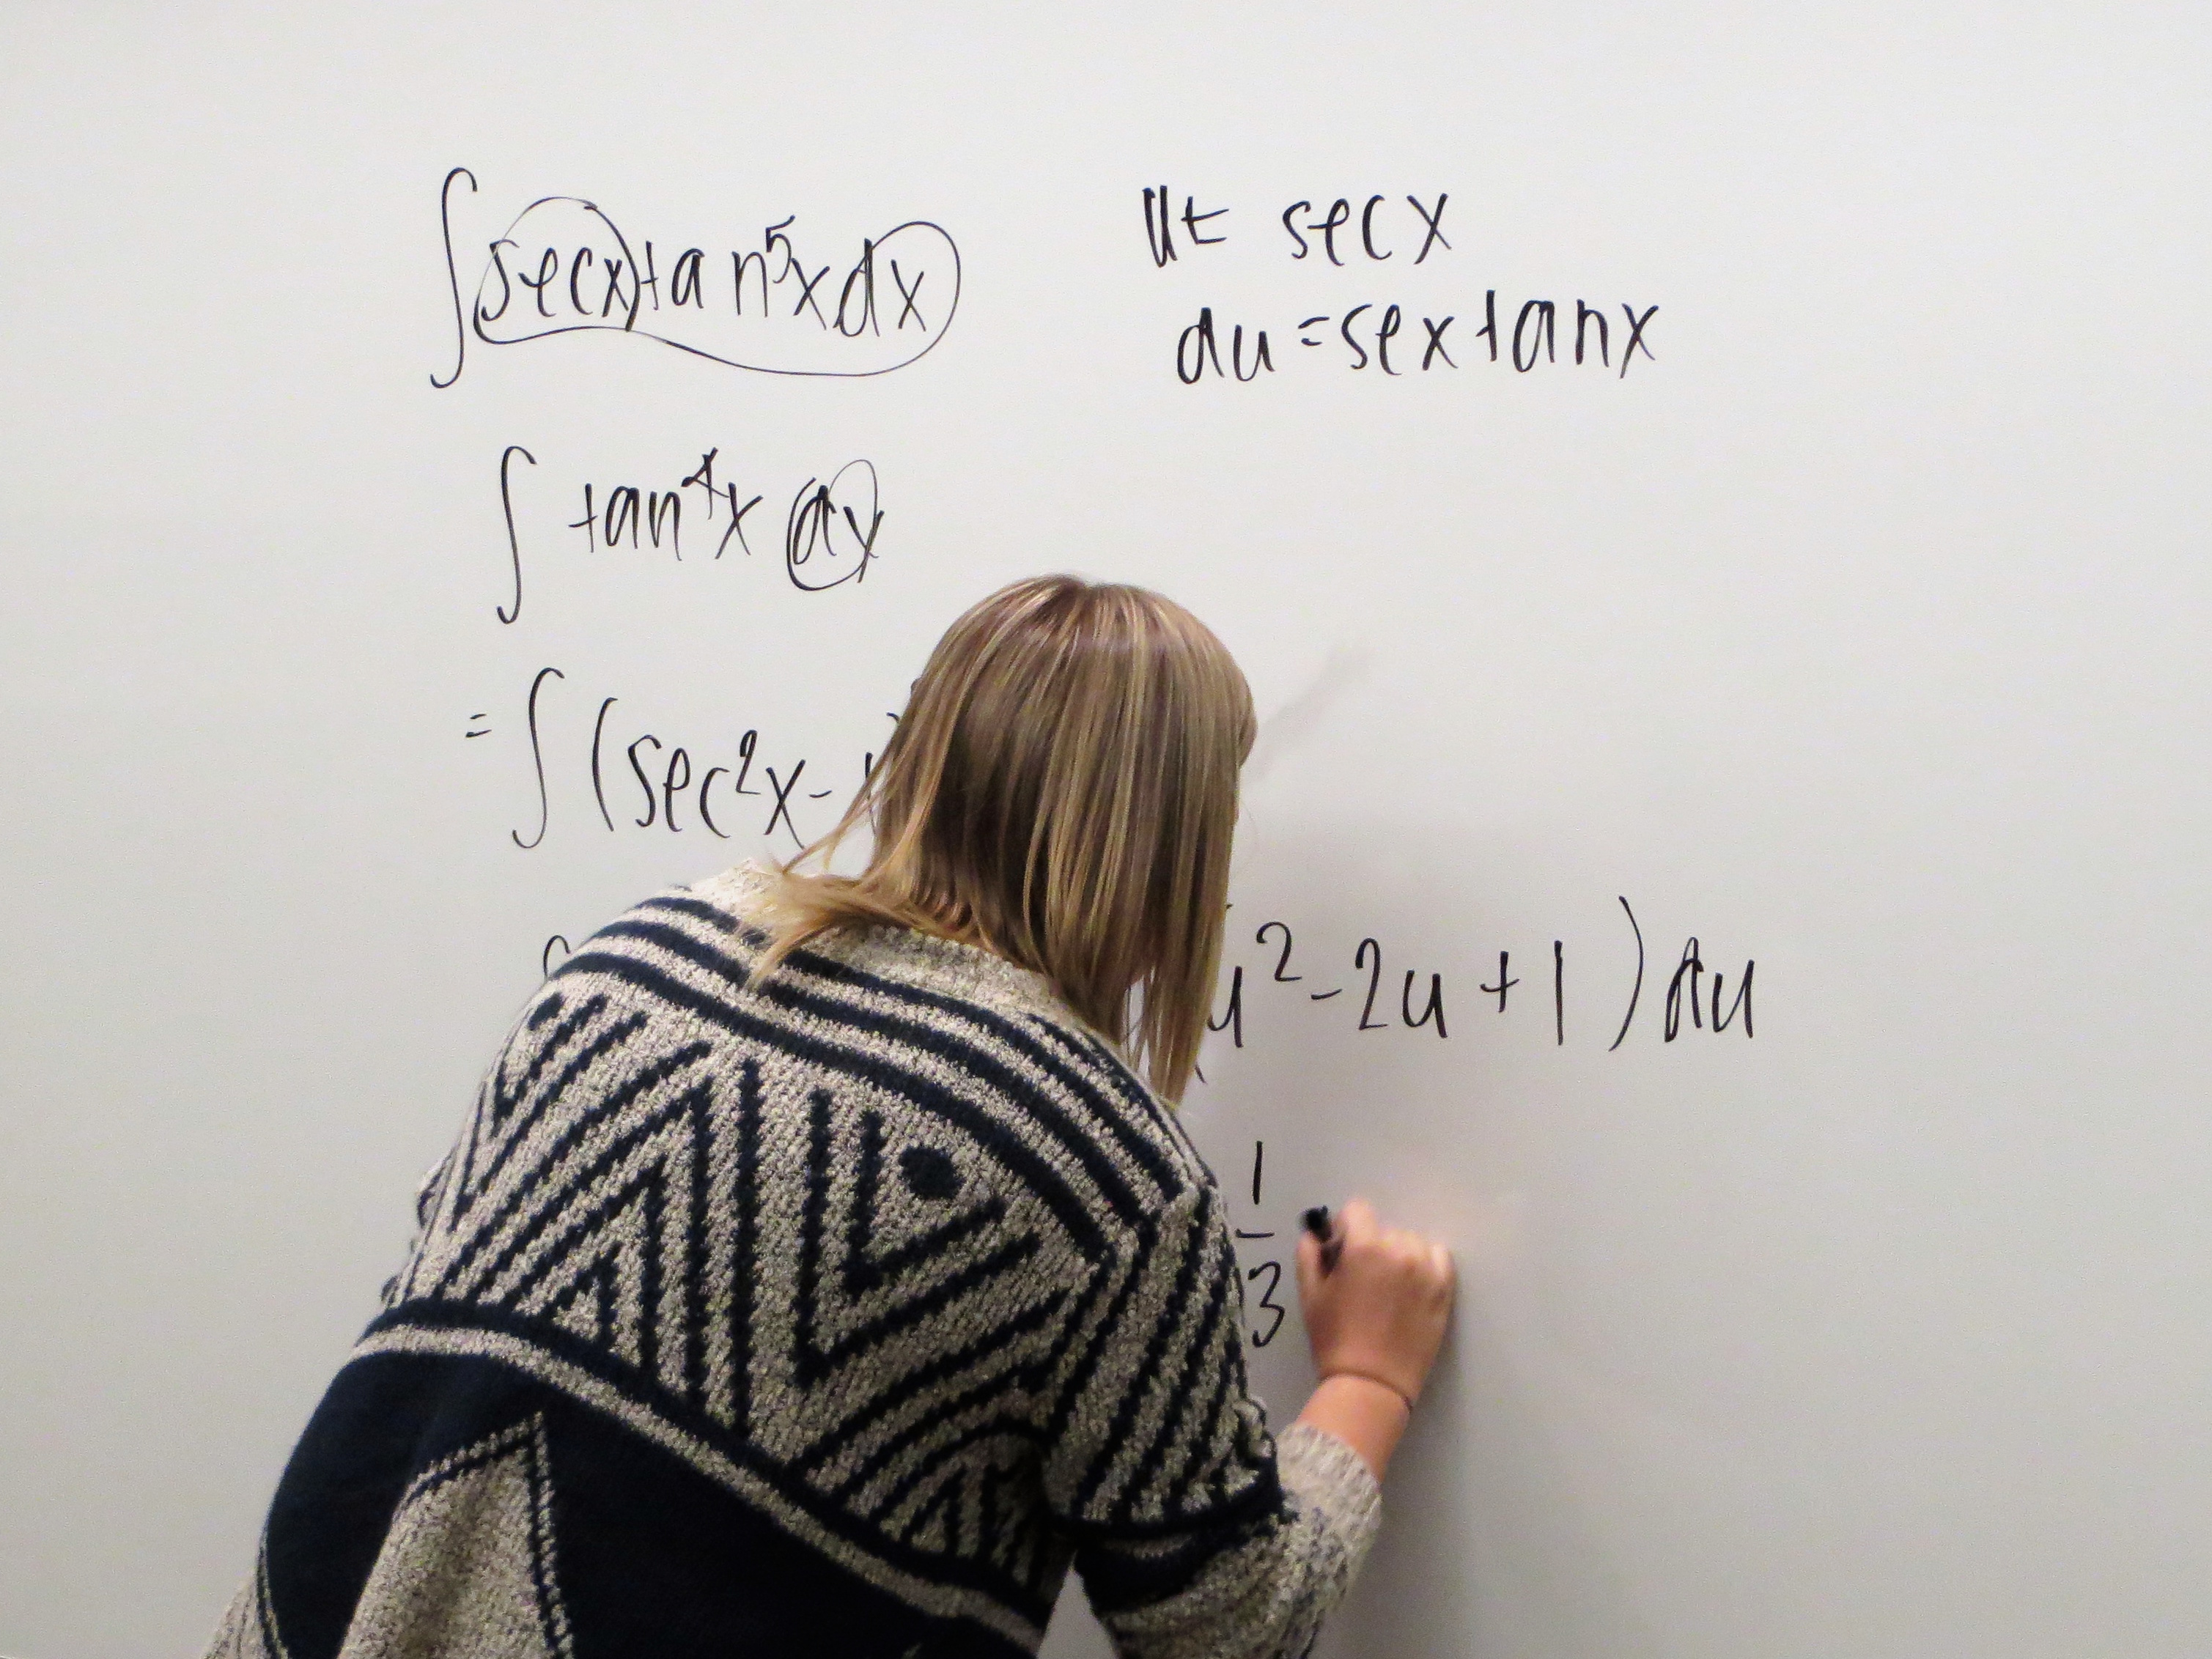 ∫ secx tan⁵x dx
u = secx
du = sex tanx
∫ tan⁴x dx
= ∫ (sec²x -
u² - 2u + 1) du
1/3